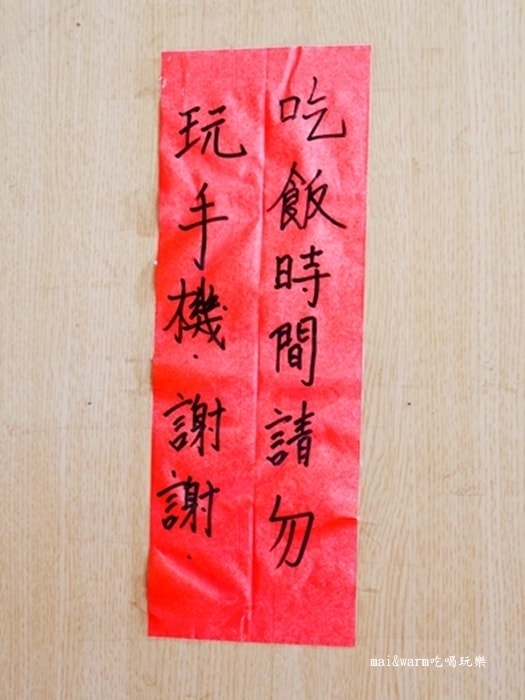 吃飯時間請勿
玩手機.謝謝.
mai&warm吃喝玩樂